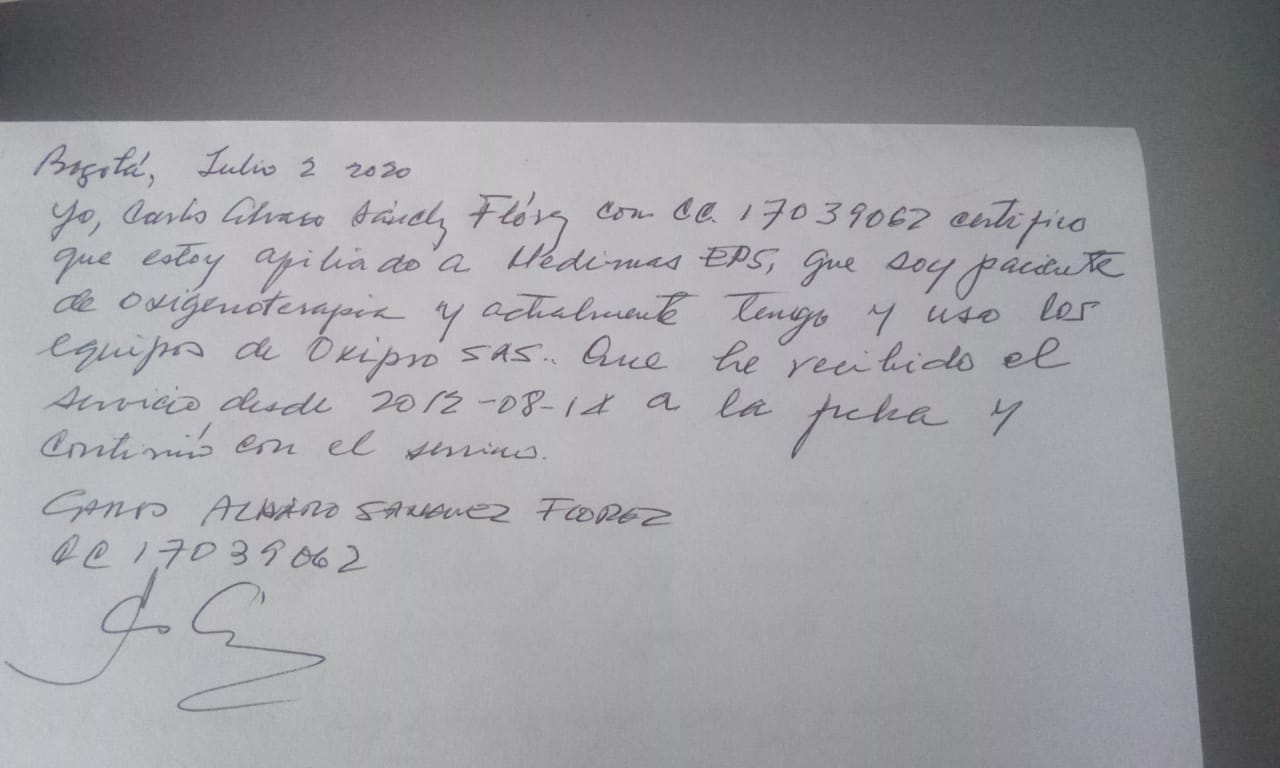 Bogotá, Julio 2 2020
Yo, Carlos Alvaro Sánchez Flórez con CC. 17039062 certifico
que estoy afiliado a Medimas EPS, que soy paciente
de oxigenoterapia y actualmente tengo y uso los
equipos de Oxipro SAS.. Que he recibido el
servicio desde 2012-08-18 a la fecha y
continúo con el servicio.
CARLOS ALVARO SANCHEZ FLOREZ
CC 17039062